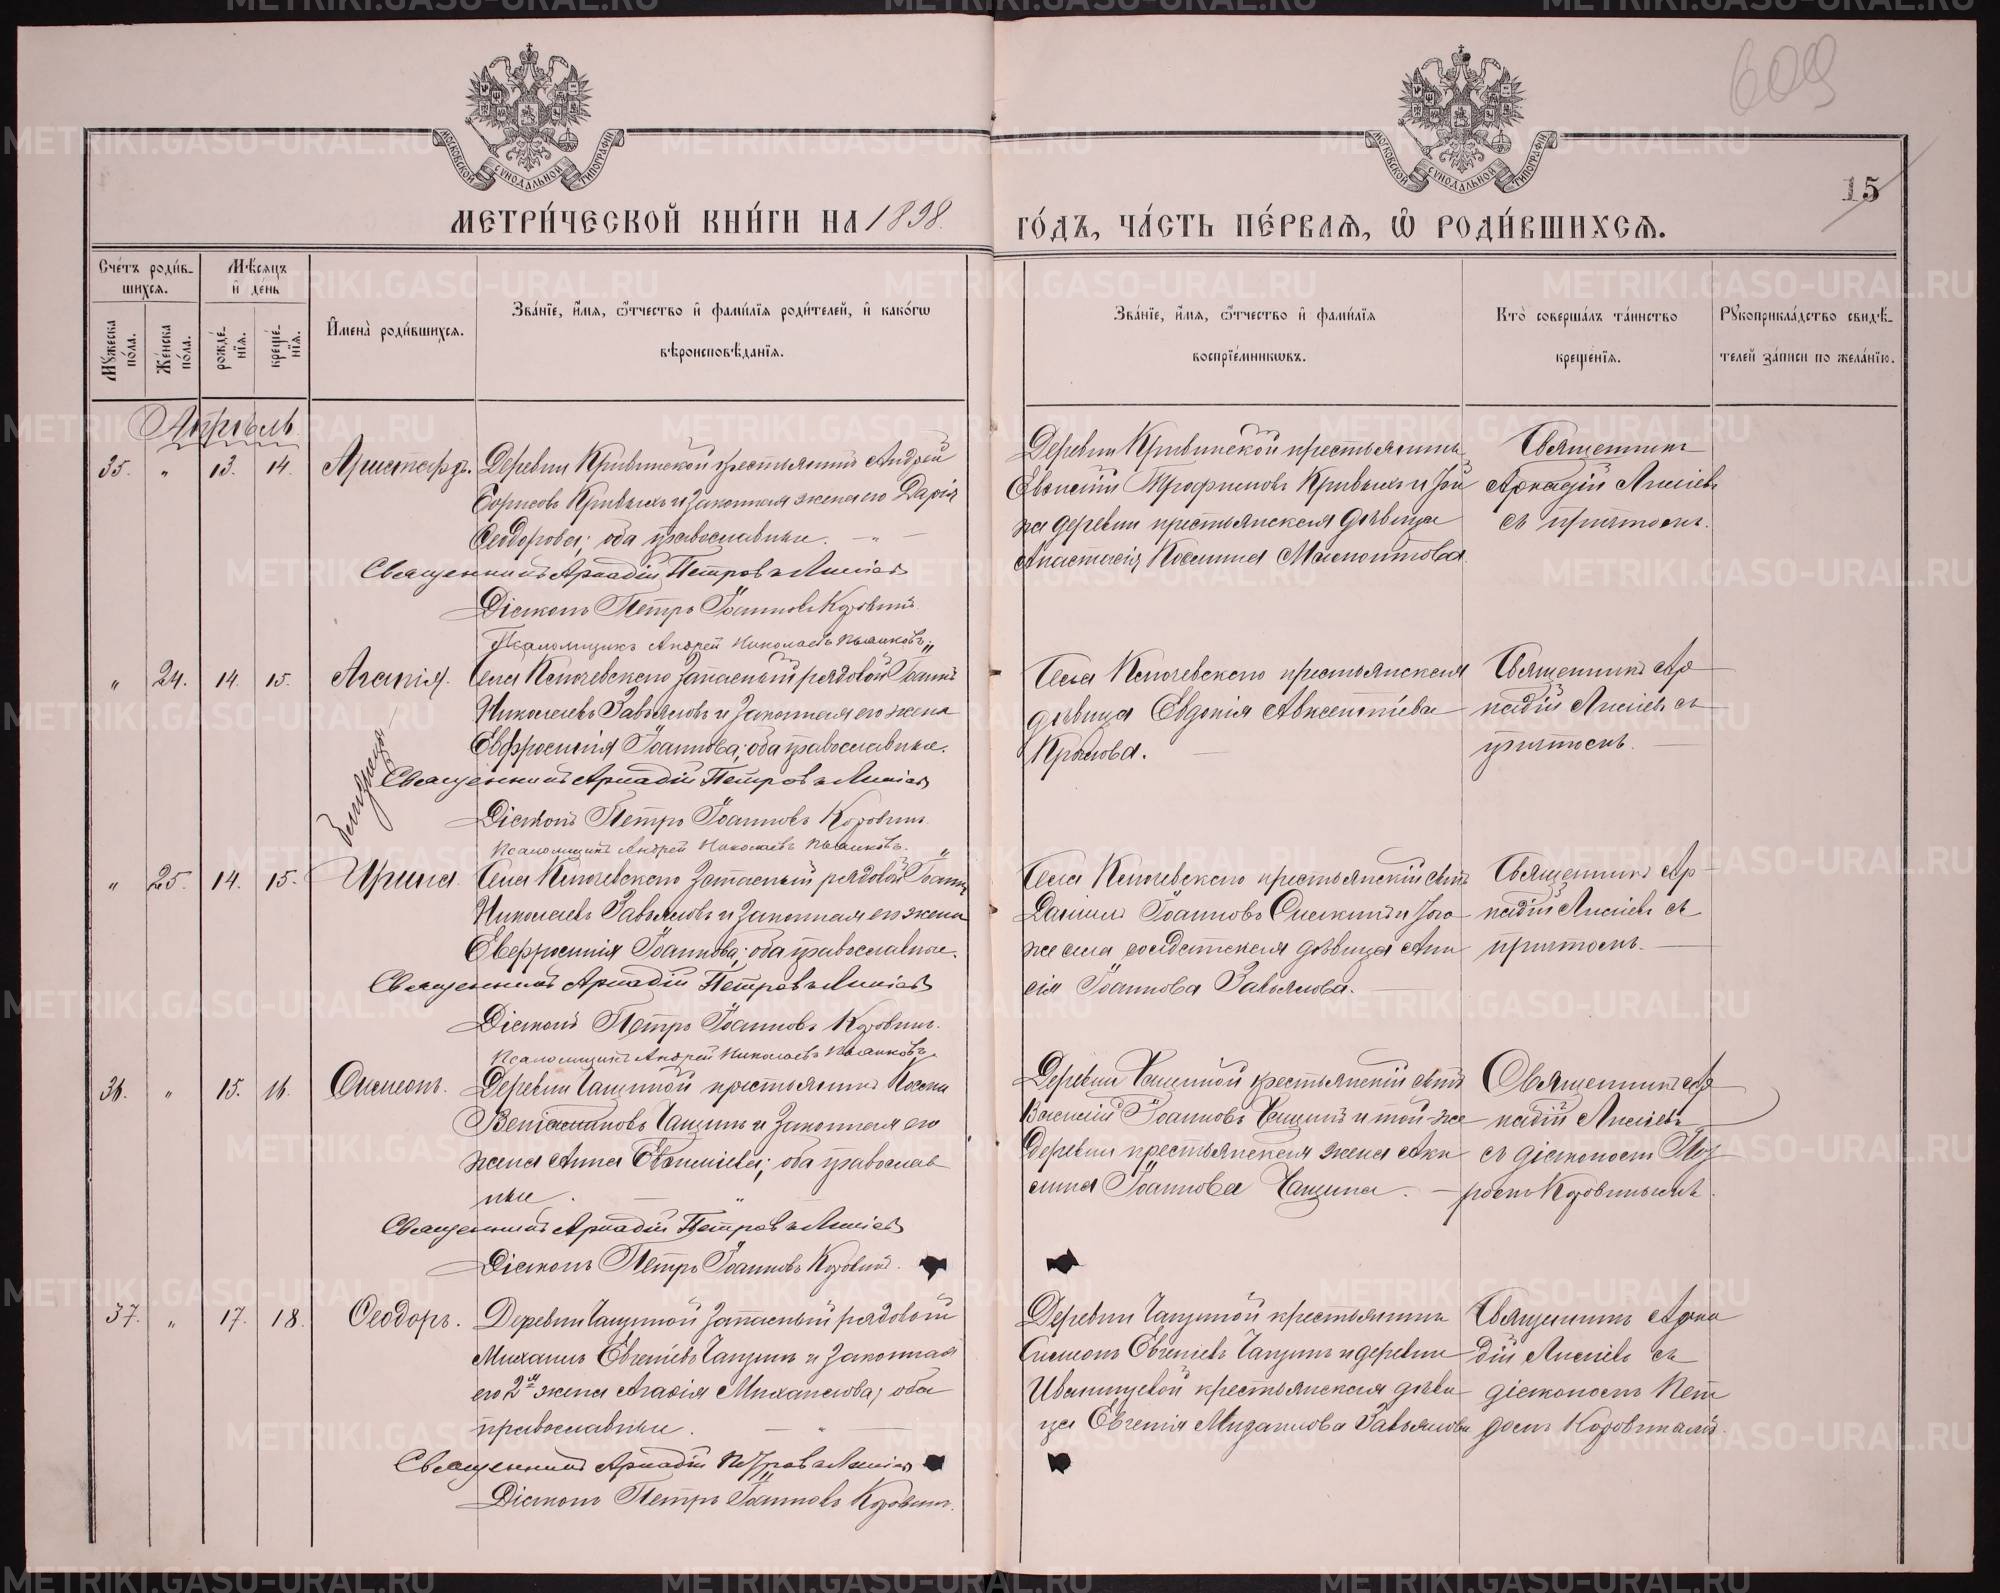 609
МОСКОВСКОЙ СѴНОДАЛЬНОЙ ТИПОГРАФІИ
МОСКОВСКОЙ СѴНОДАЛЬНОЙ ТИПОГРАФІИ
15
МЕТРИ́ЧЕСКОЙ КНИ́ГИ НА 1898 ГО́ДЪ, ЧА́СТЬ ПЕ́РВАѦ, Ѡ РОДИ́ВШИХСѦ.
Сче́тъ роди́в-
шихсѧ.
Мѣсѧцъ
и де́нь
Мꙋжеска по́ла.
Же́нска по́ла.
рожде́-нїѧ.
креще́-нїѧ.
Имена̀ роди́вшихсѧ.
Зва́нїе, и́мѧ, ѻ́тчество и фами́лїѧ роди́телей, и како́гѡ
вѣроисповѣ́данїѧ.
Зва́нїе, и́мѧ, ѻ́тчество и фами́лїѧ
воспрїе́мникѡвъ.
Кто̀ соверша́лъ та́инство
креще́нїѧ.
Рꙋкоприкла́дство свидѣ́-
телей за́писи по жела́нїю.
Апрѣль
35. " 13. 14. Аристархъ. Деревни Кривинской крестьянинъ Андрей
Борисовъ Кривыхъ и законная жена его Дарія
Ѳеодорова; оба православные.
Священникъ Аркадій Петровъ
Діаконъ Петръ Іоанновъ Коровинъ
Псаломщикъ Андрей Николаевъ
Деревни Кривинской крестьянинъ
Евѳимій Трофимовъ Кривыхъ и той
же деревни крестьянская дѣвица
Анастасія Козмина Мамонтова
Священникъ
Аркадій
съ причтомъ.
" 24. 14. 15. Агапія. Села Ключевскаго запасный рядовой Іоаннъ
Николаевъ Завьяловъ и законная его жена
Евфросинія Іоаннова; оба православные.
Священникъ Аркадій Петровъ
Діаконъ Петръ Іоанновъ Коровинъ.
Псаломщикъ Андрей Николаевъ
Близнецы
Села Ключевскаго крестьянская
дѣвица Евдокія Авксентіева
Крылова.
Священникъ Ар
кадій съ
причтомъ.
" 25. 14. 15. Ирина. Села Ключевскаго запасный рядовой Іоаннъ
Николаевъ Завьяловъ и законная его жена
Евфросинія Іоаннова; оба православные.
Священникъ Аркадій Петровъ
Діаконъ Петръ Іоанновъ Коровинъ.
Псаломщикъ Андрей Николаевъ
Села Ключевскаго крестьянскій сынъ
Даніилъ Іоанновъ и того
же села солдатская дѣвица Ани
сія Іоаннова Завьялова.
Священникъ Ар
кадій съ
причтомъ.
36. " 15. 16. Симеонъ. Деревни Чащиной крестьянинъ Козма
Веніаминовъ Чащинъ и законная его
жена Анна Евѳиміева; оба православ
ные.
Священникъ Аркадій Петровъ
Діаконъ Петръ Іоанновъ Коровинъ.
Деревни Чащиной крестьянскій сынъ
Василій Іоанновъ Чащинъ и той-же
деревни крестьянская жена Аки
лина Іоаннова Чащина.
Священникъ Ар
кадій
съ діакономъ Пет
ромъ Коровинымъ.
37. " 17. 18. Ѳеодоръ. Деревни Чащиной запасный рядовой
Михаилъ Евгеніевъ Чащинъ и законная
его 2я жена Агафія Михаилова; оба
православные.
Священникъ Аркадій Петровъ
Діаконъ Петръ Іоанновъ Коровинъ.
Деревни Чащиной крестьянинъ
Симеонъ Евгеніевъ Чащинъ и деревни
крестьянская дѣви
ца Евгенія Михаилова Завьялова
Священникъ Арка
дій съ
діакономъ Пет
ромъ Коровинымъ.
METRIKI.GASO-URAL.RU